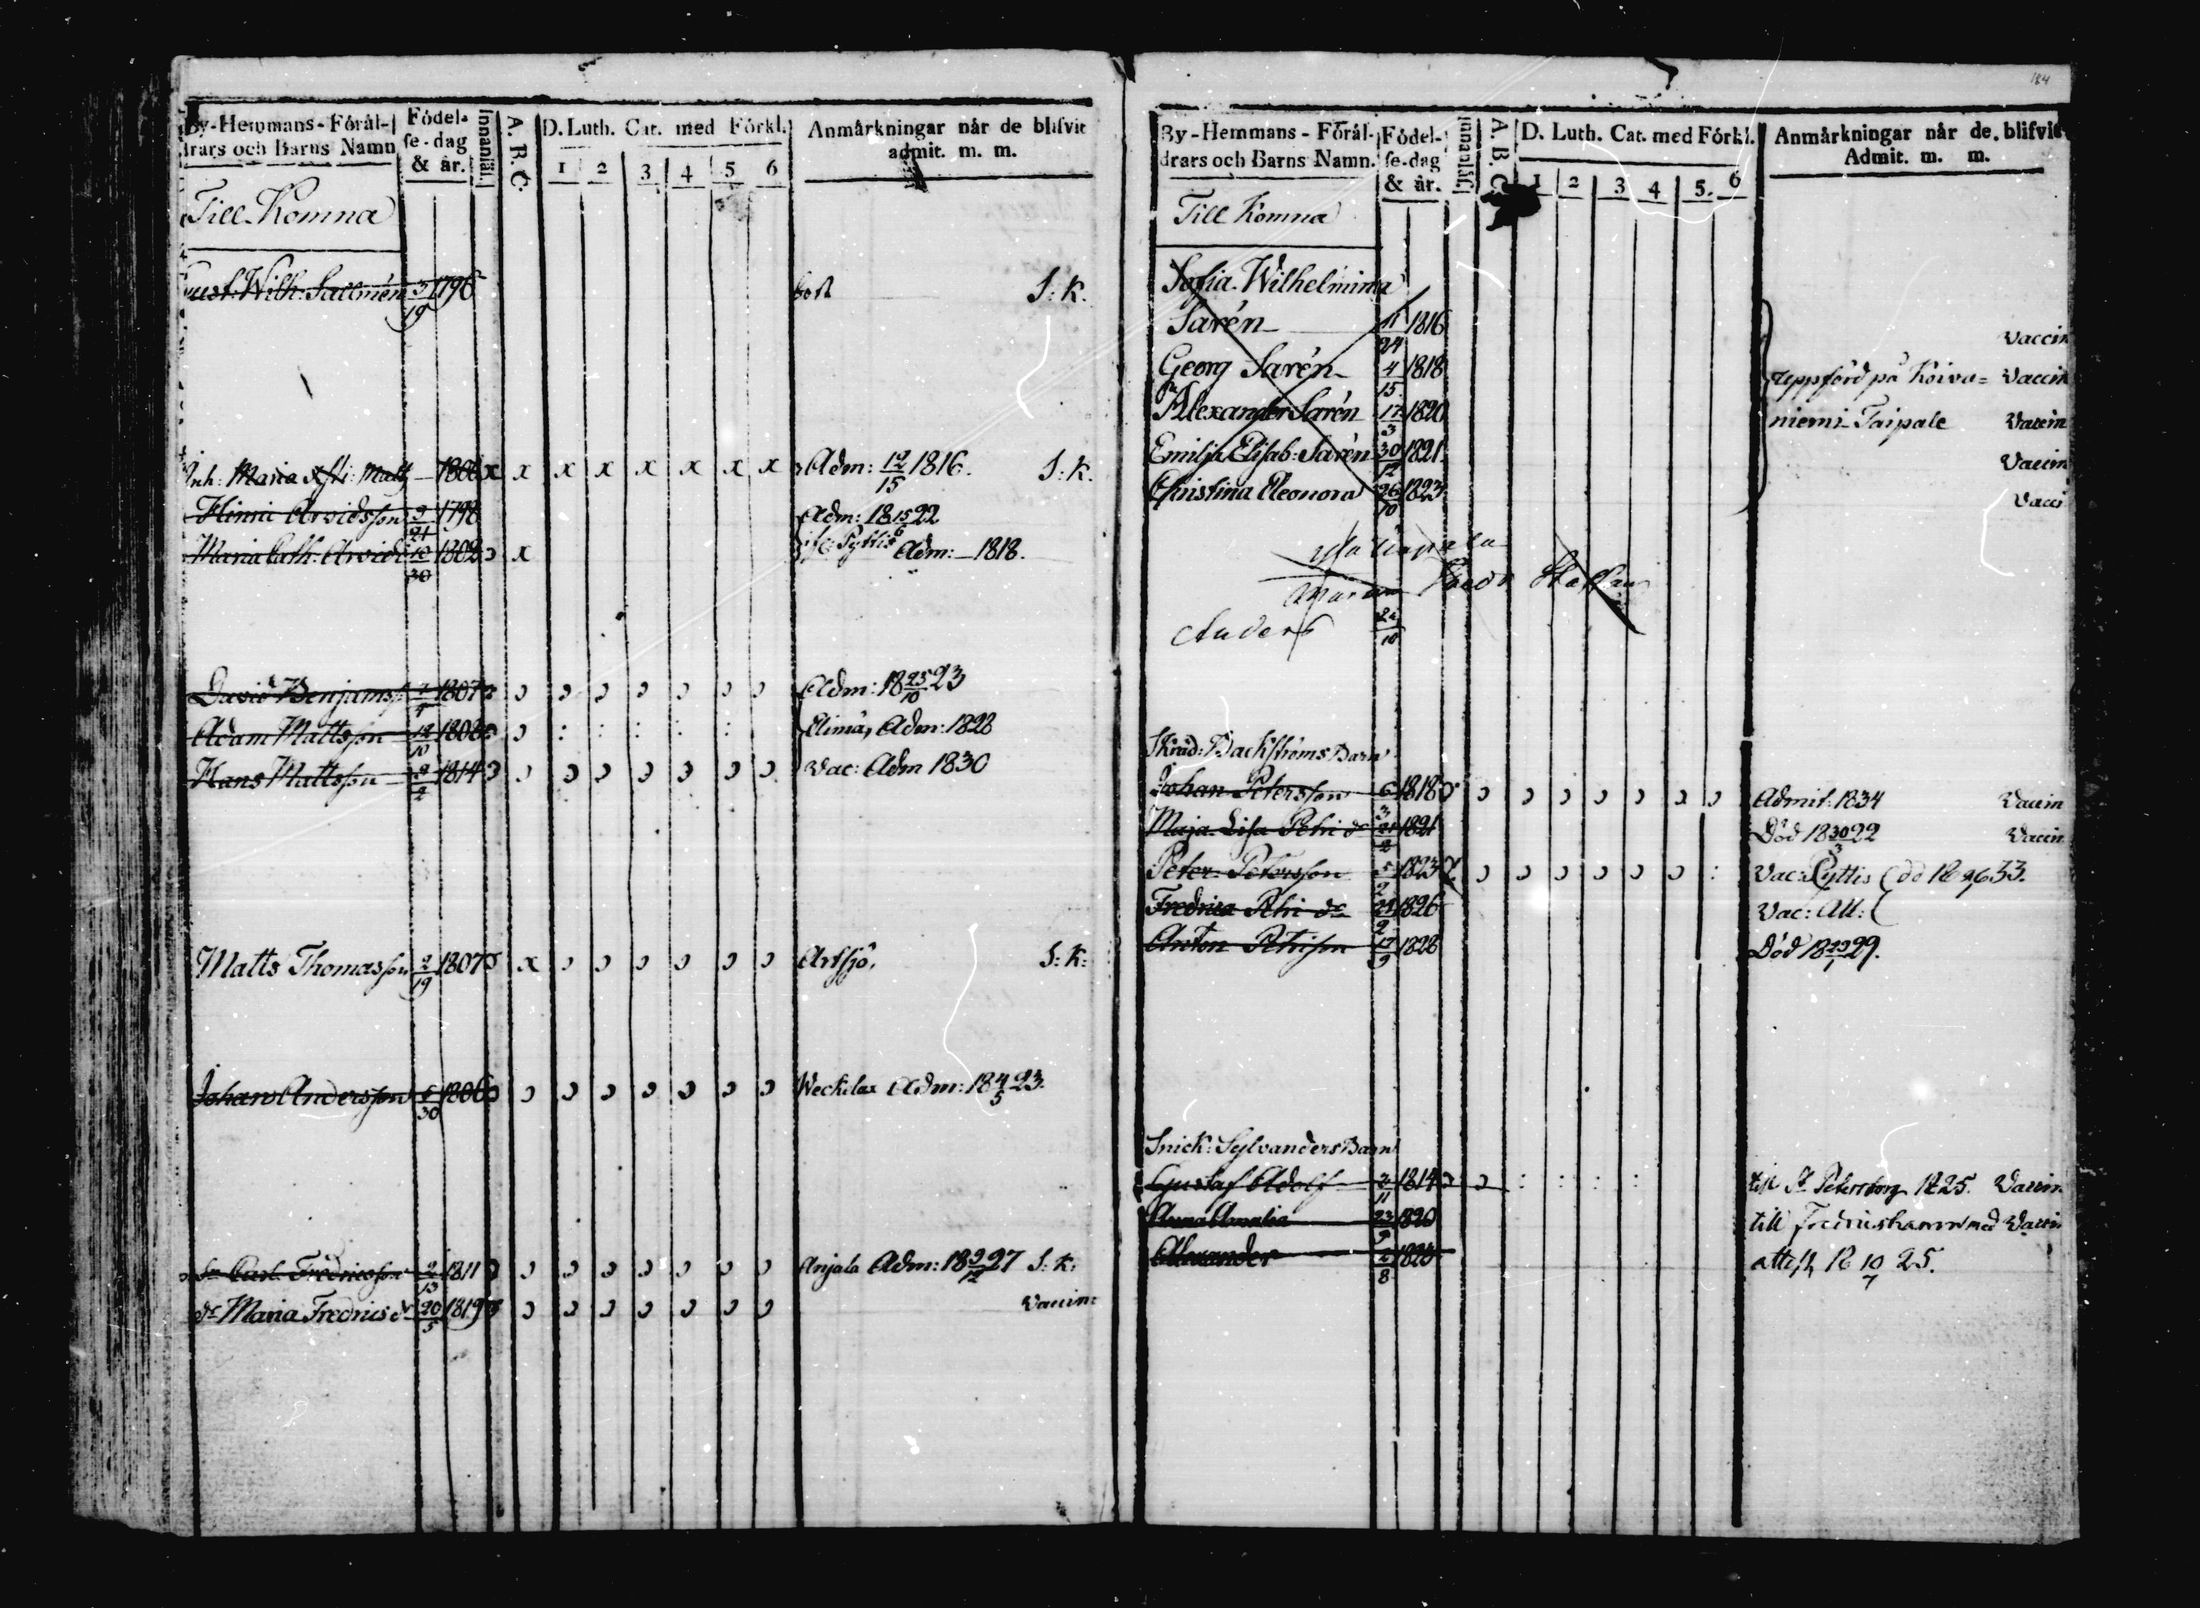 By-Hemmans-Förål-
drars och Barns Namn
Födel-
se-dag
& år.
Innanläs.
A. B. C.
D. Luth. Cat. med Förkl.
1 2 3 4 5 6
Anmårkningar når de blifvit
admit. m. m.
Till Komna
Gust: Wilh: Sallmén 3/19 1796 bort S: K.
Inh: Maria Matts 1800 x x x x x x x x Adm: 12/15 1816. S: K.
Arvidsson 9/21 1798 Adm: 18 15/6 22
Maria Cath: Arvids 10/30 1802 x Pyttis Adm: 1818.
David Benjamss 1807 Adm: 18 25/10 23
Adam Mattsson 12/10 1808 : : : : : Elimä, Adm: 1828
Hans Mattsson 1814 Vac: Adm 1830
Matts Thomasson 2/19 1807 x Artsjö. S: K:
Johan Andersson 5/30 1806 Weckelax Adm: 18 4/5 23.
Sn Carl Fredricsson 2/13 1811 Anjala Adm: 18 9/12 27 S: K:
dr Maria Fredrics dr 20/5 1819 Vaccin:
184
By-Hemmans-Förål-
drars och Barns Namn.
Födel-
se-dag
& år.
Innanläs.
A. B. C.
D. Luth. Cat. med Förkl.
1 2 3 4 5. 6
Anmårkningar når de. blifvit
Admit. m. m.
Till Komna
Sofia Wilhelmina
Sarén 11/24 1816 Vaccin
Georg Sarén 4/15 1818 uppförd på Koiva= Vaccin
Alexander Sarén 17/3 1820 niemi Taipale Vaccin
Emilia Elisab: Sarén 30/12 1821 Vaccin
Christina Eleonora 26/10 1823 Vacci
Anders 24/10
Skräd: Backströms Barn
Johan Petersson 6/3 1818 Admit: 1834 Vaccin
Maja Lisa Petri dr 21/2 1821 Död 18 30/3 22 Vaccin
Peter Petersson 5/2 1823 : Vac: Pyttis
Fredrica Petri dr 1826 Vac: Att:
Anton Petrisson 17/9 1828 Död 18 23/1 29.
Snick: Sylvanders Barn
Gustaf Adolf 2/11 1814 : : : : till St Petersborg 1825. Vaccin
Anna Amalia 23/9 1820 till Fredricshamn med Vaccin
Alexander 2/8 1823 attest 18 10/7 25.